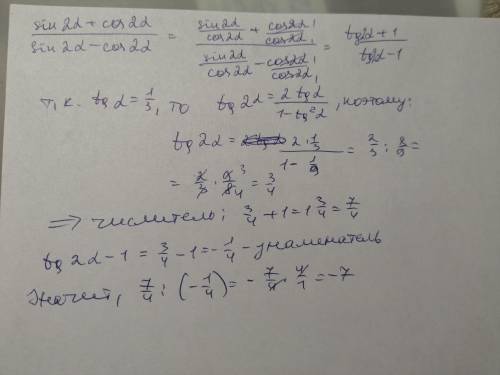 (sin2α + cos2α)/(sin2α − cos2α) = (sin2α/cos2α + cos2α/cos2α)/(sin2α/cos2α − cos2α/cos2α) = (tg2α + 1)/(tg2α − 1)
т.к. tgα = 1/3, то tg2α = 2tgα/(1 − tg²α), поэтому:
tg2α = (2·1/3)/(1 − 1/9) = 2/3 : 8/9 =
= 2/3 · 9/8 ³ ₄ = 3/4
⇒ числитель: 3/4 + 1 = 1 3/4 = 7/4
tg2α − 1 = 3/4 − 1 = −1/4 − знаменатель
Значит, 7/4 : (−1/4) = −7/4 · 4/1 = −7